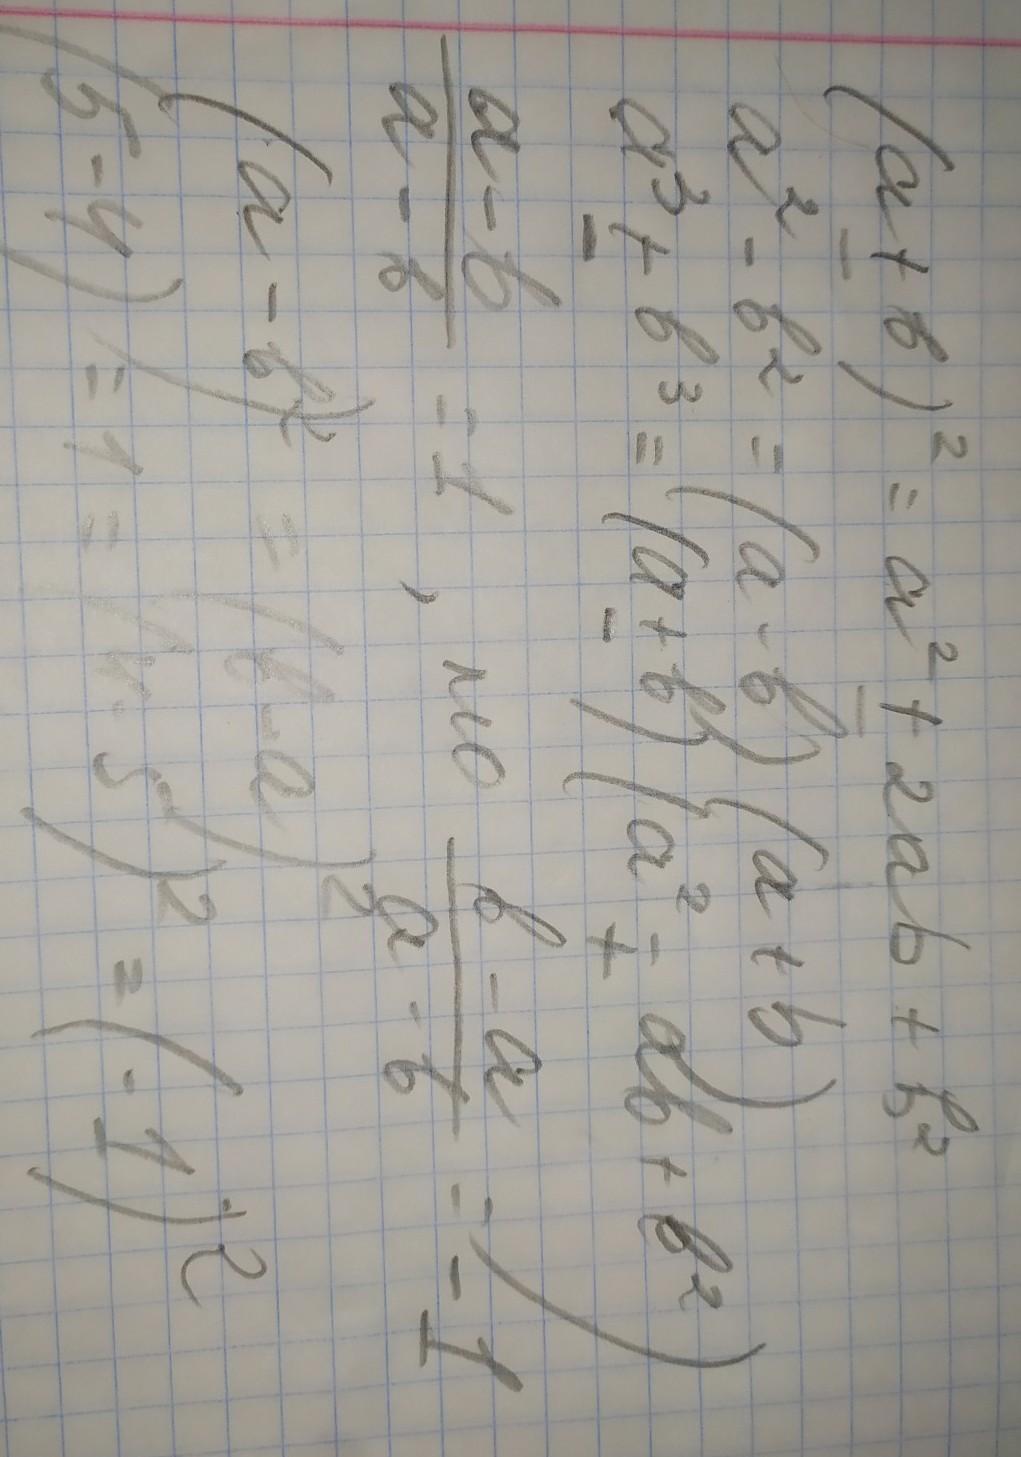 (a ± в)² = a² ± 2ab + в²
a² - в² = (a - b)(a + b)
a³ ± в³ = (a ± в)(a² ∓ ab + в²)
a - b / a - в = 1, но в - a / a - b = -1
(a - в)² = (в - a)²
(5 - 4) = 1 = (4 - 5)² = (-1)²